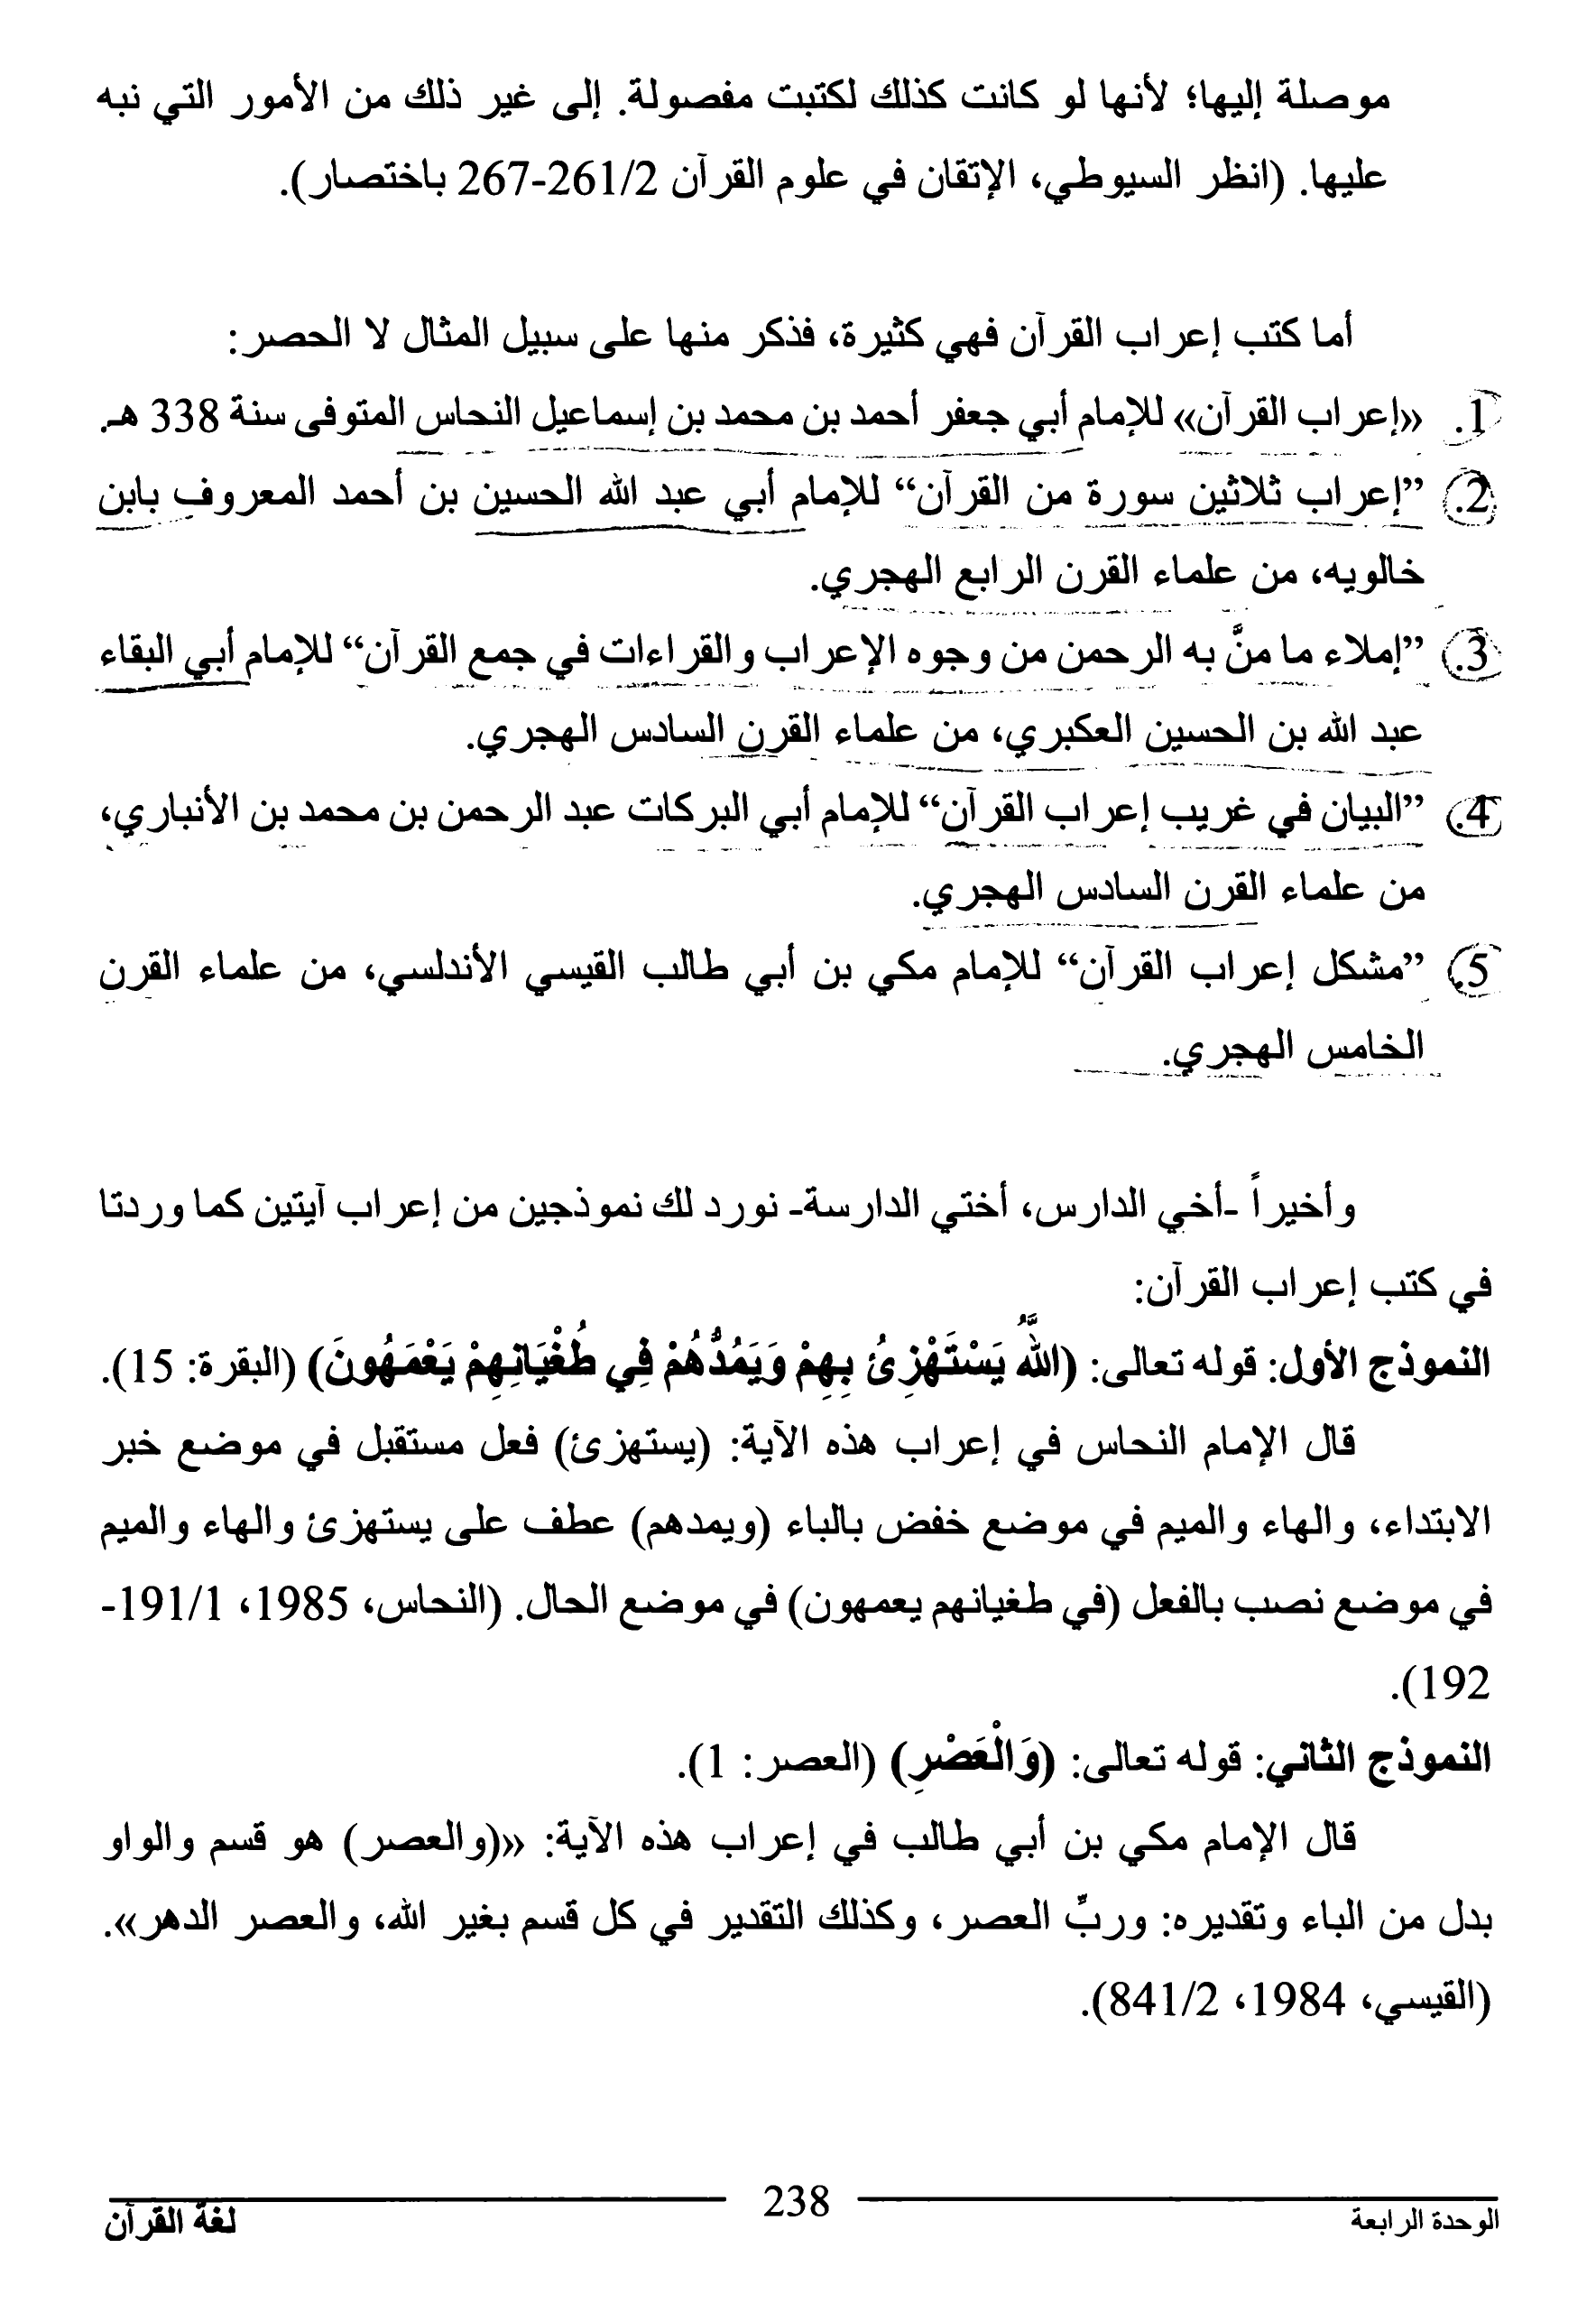 موصلة إليها؛ لأنها لو كانت كذلك لكتبت مفصولة. إلى غير ذلك من الأمور التي نبه
عليها. (انظر السيوطي، الإتقان في علوم القرآن 261/2-267 باختصار).
أما كتب إعراب القرآن فهي كثيرة، فذكر منها على سبيل المثال لا الحصر:
1. «إعراب القرآن» للإمام أبي جعفر أحمد بن محمد بن إسماعيل النحاس المتوفى سنة 338 هـ.
2. ”إعراب ثلاثين سورة من القرآن“ للإمام أبي عبد الله الحسين بن أحمد المعروف بابن
خالويه، من علماء القرن الرابع الهجري.
3. ”إملاء ما منَّ به الرحمن من وجوه الإعراب والقراءات في جمع القرآن“ للإمام أبي البقاء
عبد الله بن الحسين العكبري، من علماء القرن السادس الهجري.
4. ”البيان في غريب إعراب القرآن“ للإمام أبي البركات عبد الرحمن بن محمد بن الأنباري،
من علماء القرن السادس الهجري.
5. ”مشكل إعراب القرآن“ للإمام مكي بن أبي طالب القيسي الأندلسي، من علماء القرن
الخامس الهجري.
وأخيراً -أخي الدارس، أختي الدارسة- نورد لك نموذجين من إعراب آيتين كما وردتا
في كتب إعراب القرآن:
النموذج الأول: قوله تعالى: (اللَّهُ يَسْتَهْزِئُ بِهِمْ وَيَمُدُّهُمْ فِي طُغْيَانِهِمْ يَعْمَهُونَ) (البقرة: 15).
قال الإمام النحاس في إعراب هذه الآية: (يستهزئ) فعل مستقبل في موضع خبر
الابتداء، والهاء والميم في موضع خفض بالباء (ويمدهم) عطف على يستهزئ والهاء والميم
في موضع نصب بالفعل (في طغيانهم يعمهون) في موضع الحال. (النحاس، 1985، 191/1-
192).
النموذج الثاني: قوله تعالى: (وَالْعَصْرِ) (العصر: 1).
قال الإمام مكي بن أبي طالب في إعراب هذه الآية: «(والعصر) هو قسم والواو
بدل من الباء وتقديره: وربِّ العصر، وكذلك التقدير في كل قسم بغير الله، والعصر الدهر».
(القيسي، 1984، 841/2).
الوحدة الرابعة 238 لغة القرآن